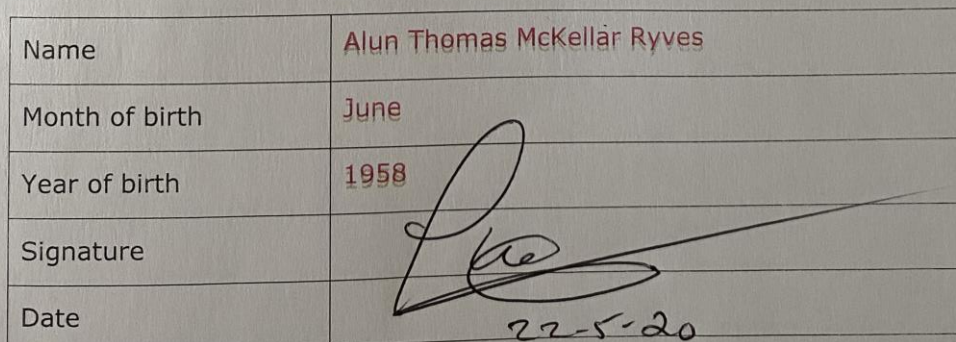 Name Alun Thomas McKellar Ryves
Month of birth June
Year of birth 1958
Signature
Date 22-5-20